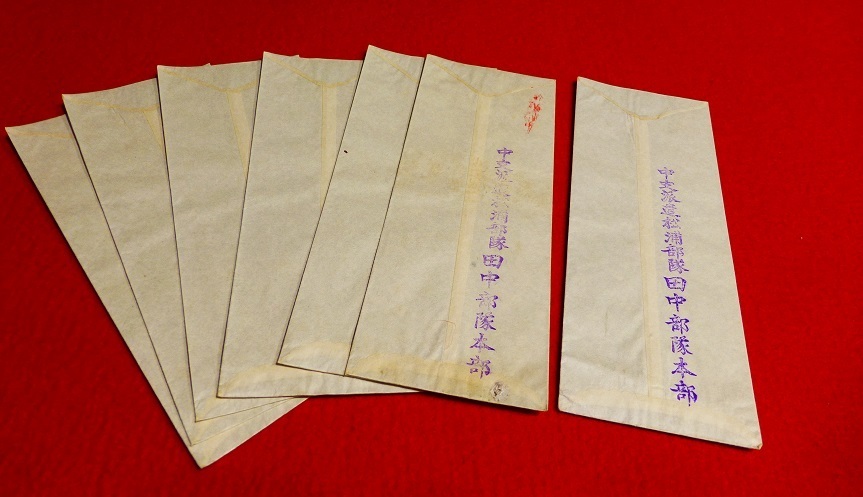 中支派遣松浦部隊田中部隊本部
中支派遣松浦部隊田中部隊本部